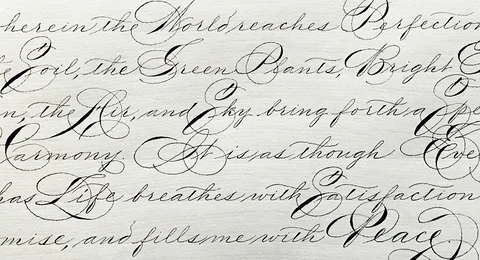 herein the World reaches Perfection
Soil, the Green Plants, Bright
the Air, and Sky bring forth a
Harmony. It is as though Eve
has Life breathes with Satisfaction
mise, and fills me with Peace.